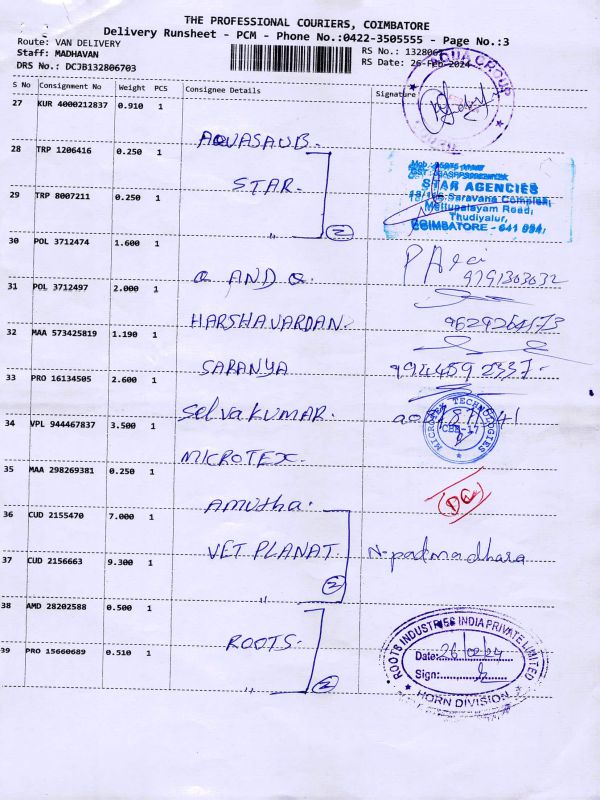 THE PROFESSIONAL COURIERS, COIMBATORE
Delivery Runsheet - PCM - Phone No.:0422-3505555 - Page No.:3
Route: VAN DELIVERY
Staff: MADHAVAN
DRS No.: DCJB132806703
RS No.: 132806
RS Date: 26-Feb-2024
S No Consignment No Weight PCS Consignee Details Signature
27 KUR 4000212837 0.910 1
AQUASAUB.
AQUA GROUP
28 TRP 1206416 0.250 1
STAR.
STAR AGENCIES
Saravana Complex,
Mettupalayam Road,
Thudiyalur,
COIMBATORE - 641 034.
29 TRP 8007211 0.250 1
2
30 POL 3712474 1.600 1
Q AND Q.
9791303032
31 POL 3712497 2.000 1
HARSHAVARDAN.
32 MAA 573425819 1.190 1
SARANYA
9944592337-
33 PRO 16134505 2.600 1
Selvakumar.
34 VPL 944467837 3.500 1
MICROTEX
MICROTEX TECHNOLOGIES
CBE-17
35 MAA 298269381 0.250 1
Amutha.
36 CUD 2155470 7.000 1
VET PLANAT.
N-padmadhara
37 CUD 2156663 9.300 1
"
2
38 AMD 28202588 0.500 1
ROOTS.
ROOTS INDUSTRIES INDIA PRIVATE LIMITED
Date: 26/02/24
Sign:
HORN DIVISION
39 PRO 15660689 0.510 1
"
2